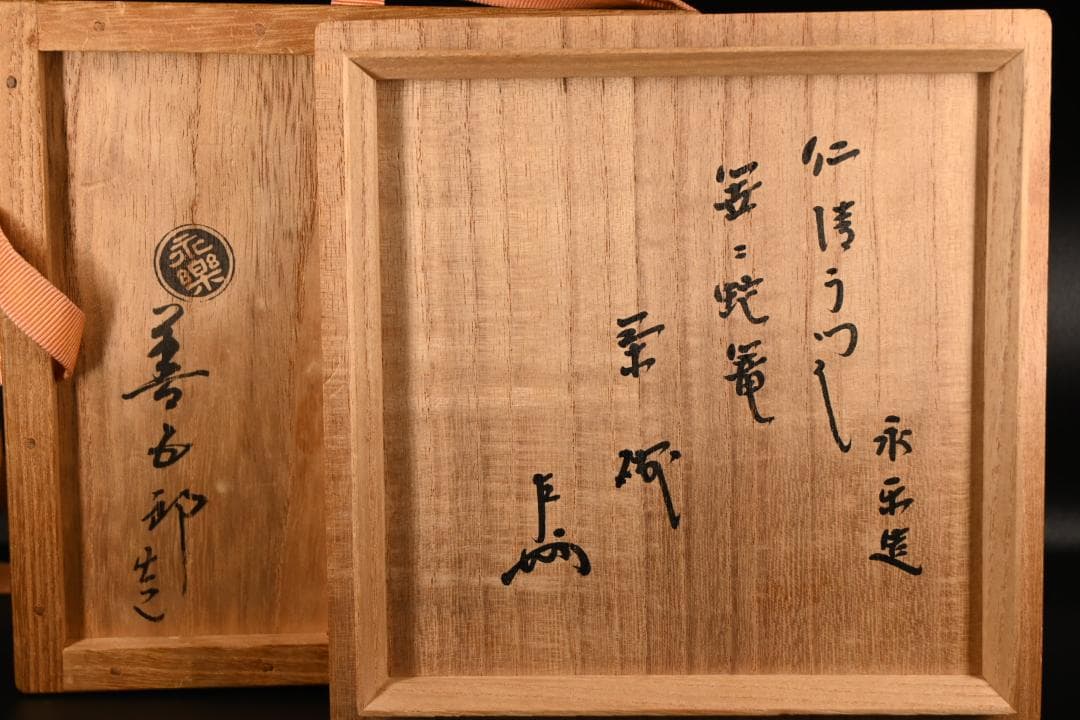 永楽造
仁清うつし
笠ニ蛇篭
茶碗
左（花押）
永樂
善五郎造